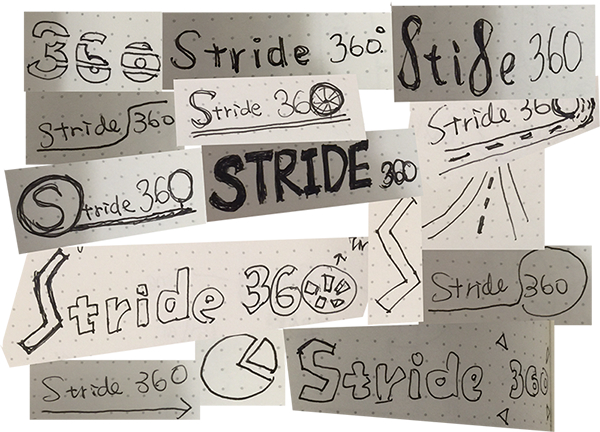 360
Stride 360°
Stide 360
Stride 360
Stride 360
Stride 360
Stride 360
STRIDE 360
Stride 360
S
Stride 360
Stride 360
Stride 360